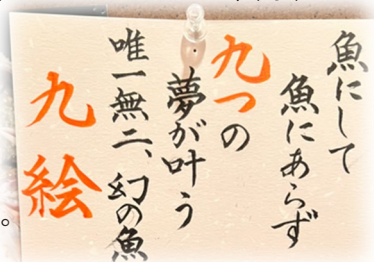 魚にして
魚にあらず
九つの
夢が叶う
唯一無二、幻の魚
九絵